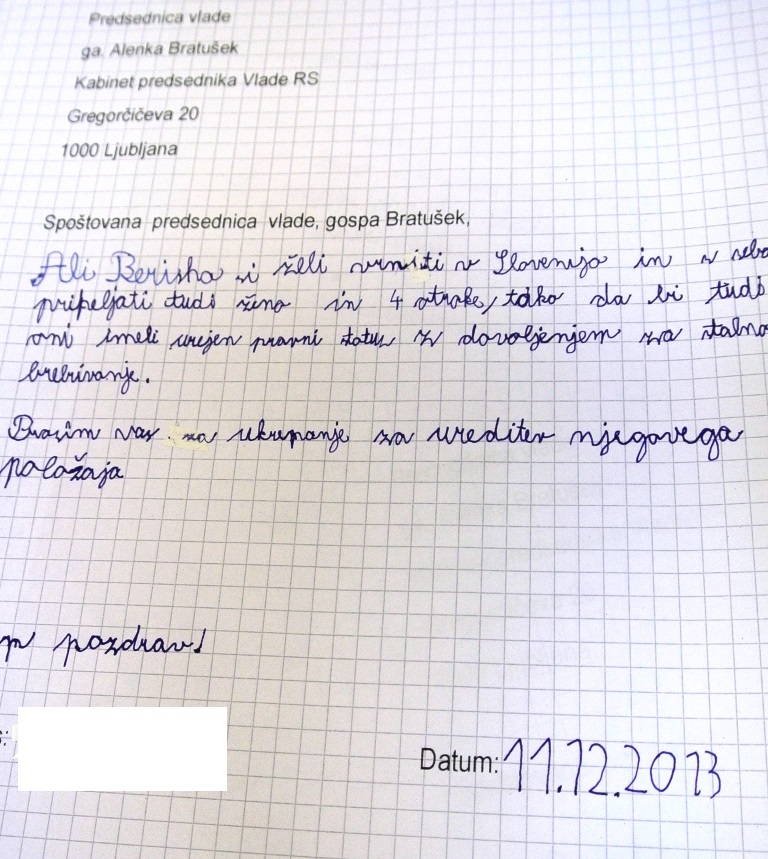 Predsednica vlade
ga. Alenka Bratušek
Kabinet predsednika Vlade RS
Gregorčičeva 20
1000 Ljubljana
Spoštovana predsednica vlade, gospa Bratušek,
Ali Berisha si želi vrniti v Slovenijo in s sebo
pripeljati tudi ženo in 4 otroke, tako da bi tudi
oni imeli urejen pravni status z dovoljenjem za stalno
brebivanje.
Prosim vas za ukrepanje za ureditev njegovega
položaja
pozdrav!
Datum: 11.12.2013